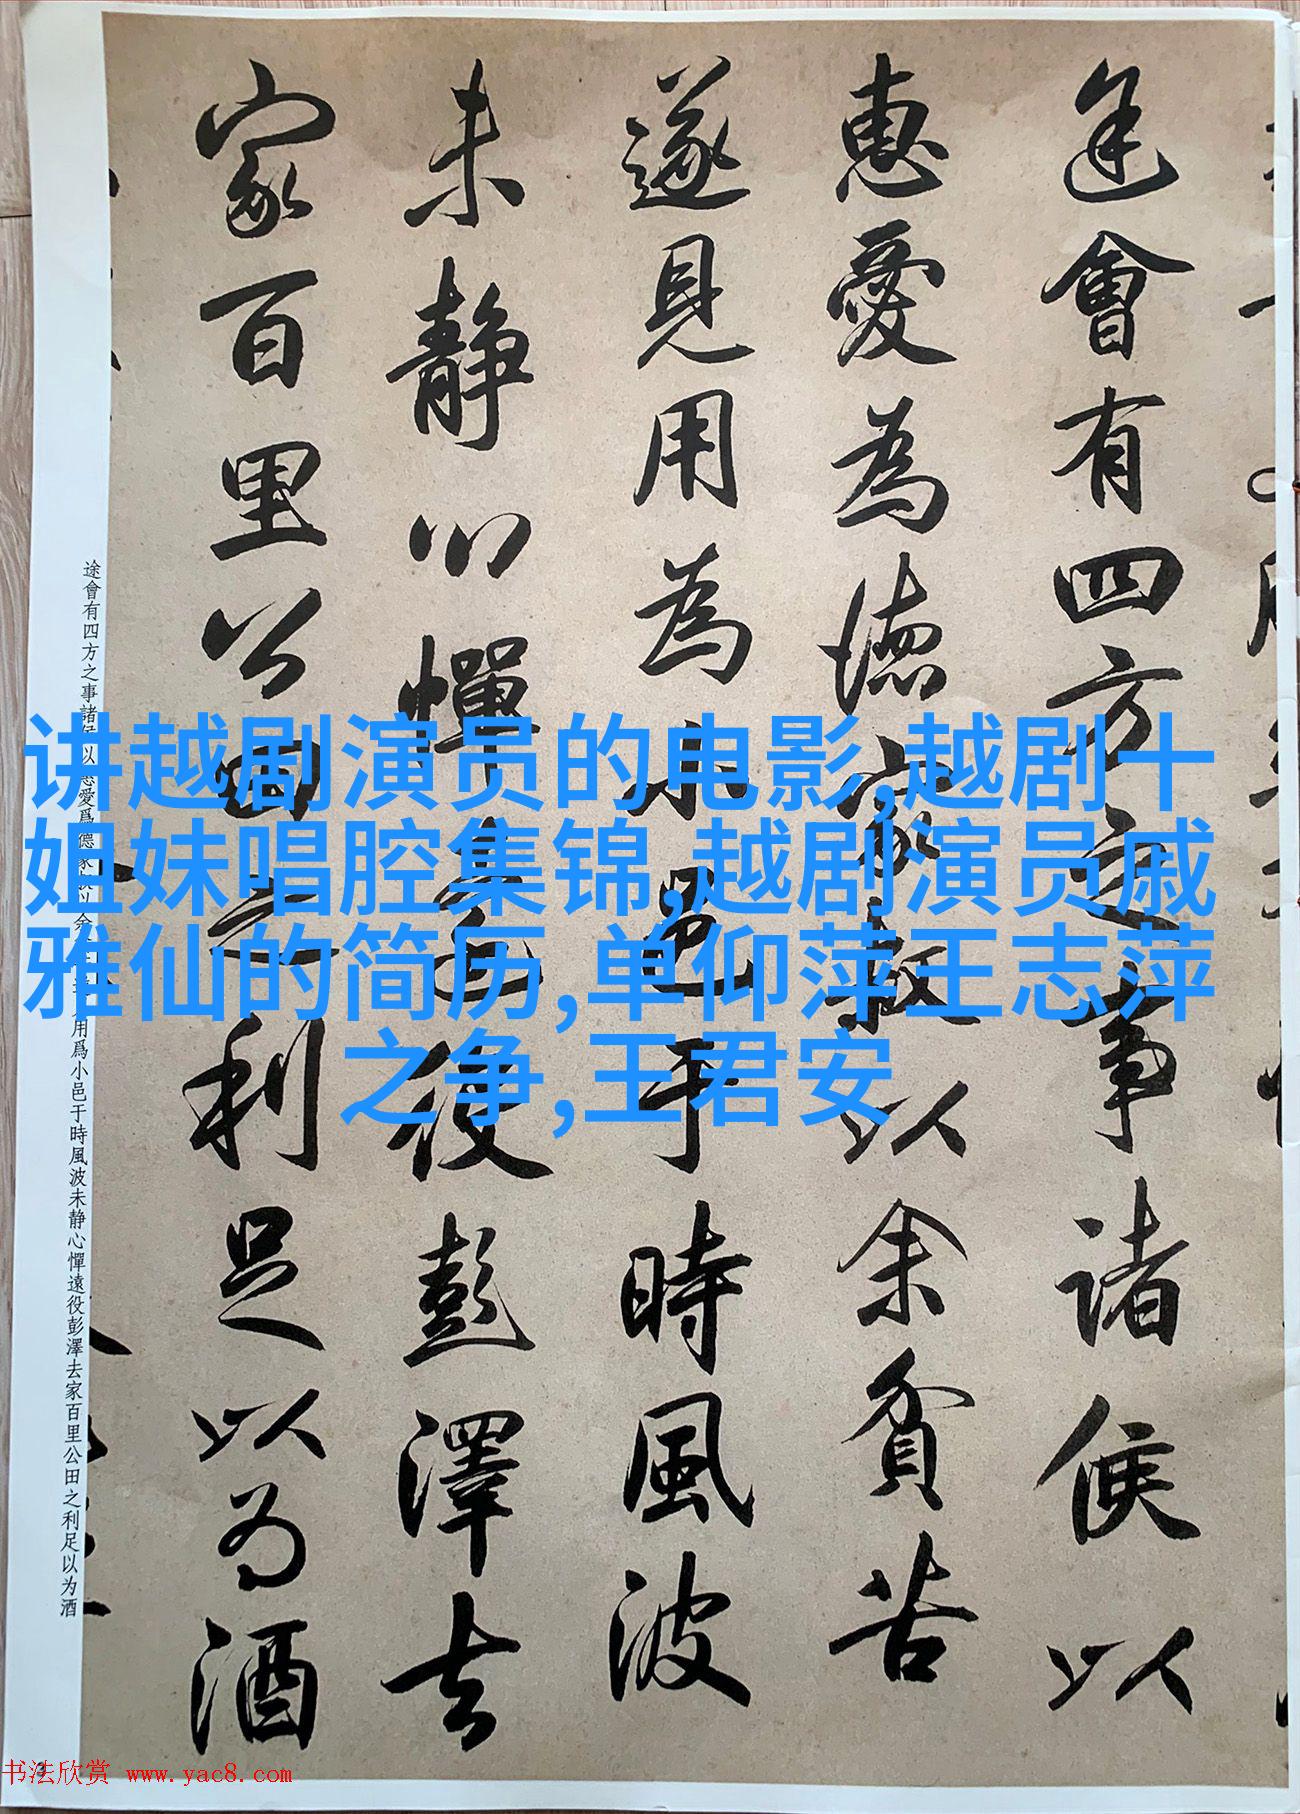 途會有四方之事諸侯以
惠愛為德家叔以余貧苦
遂見用為小邑于時風波
未靜心憚遠役彭澤去
家百里公田之利足以為酒
途會有四方之事諸侯以惠愛爲德家叔以余貧苦遂見用爲小邑于時風波未静心憚遠役彭澤去家百里公田之利足以为酒
讲越剧演员的电影,越剧十
姐妹唱腔集锦,越剧演员戚
雅仙的简历,单仰萍王志萍
之争,王君安
书法欣赏 www.yac8.com